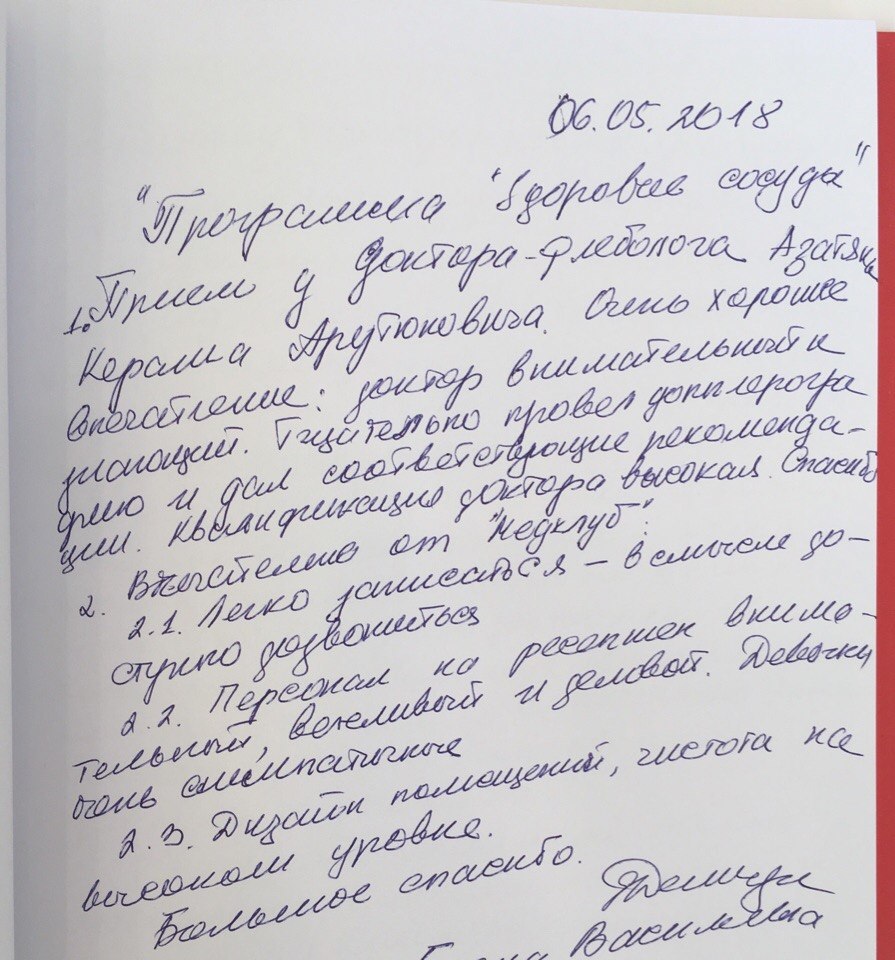 06.05.2018
"Программа "Здоровые сосуды"
1. Прием у доктора-флеболога Азатяна
Керама Арутюновича. Очень хорошее
впечатление: доктор внимательный и
знающий. Тщательно провел допплерогра
фию и дал соответствующие рекоменда-
ции. Квалификация доктора высокая. Спасибо
2. Впечатления от "Медклуб":
2.1. Легко записаться – в смысле до-
ступно дозвониться
2.2. Персонал на ресепшен внима-
тельный, вежливый и деловой. Девочки
очень симпатичные
2.3. Дизайн помещений, чистота на
высоком уровне.
Большое спасибо.
Васильевна